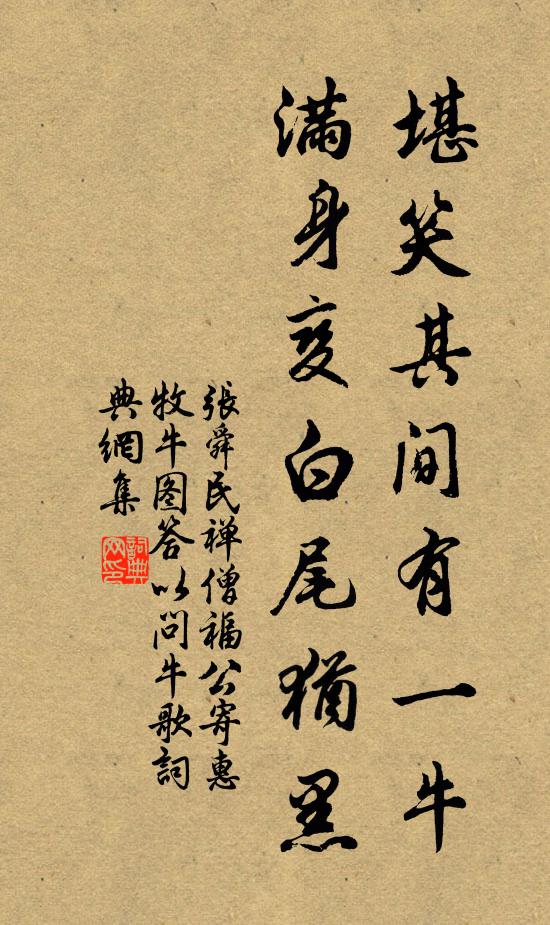 堪笑其间有一牛
满身变白尾犹黑
張舜民禅僧福公寄惠
牧牛图答以问牛歌詞
典網集
詞典
网印